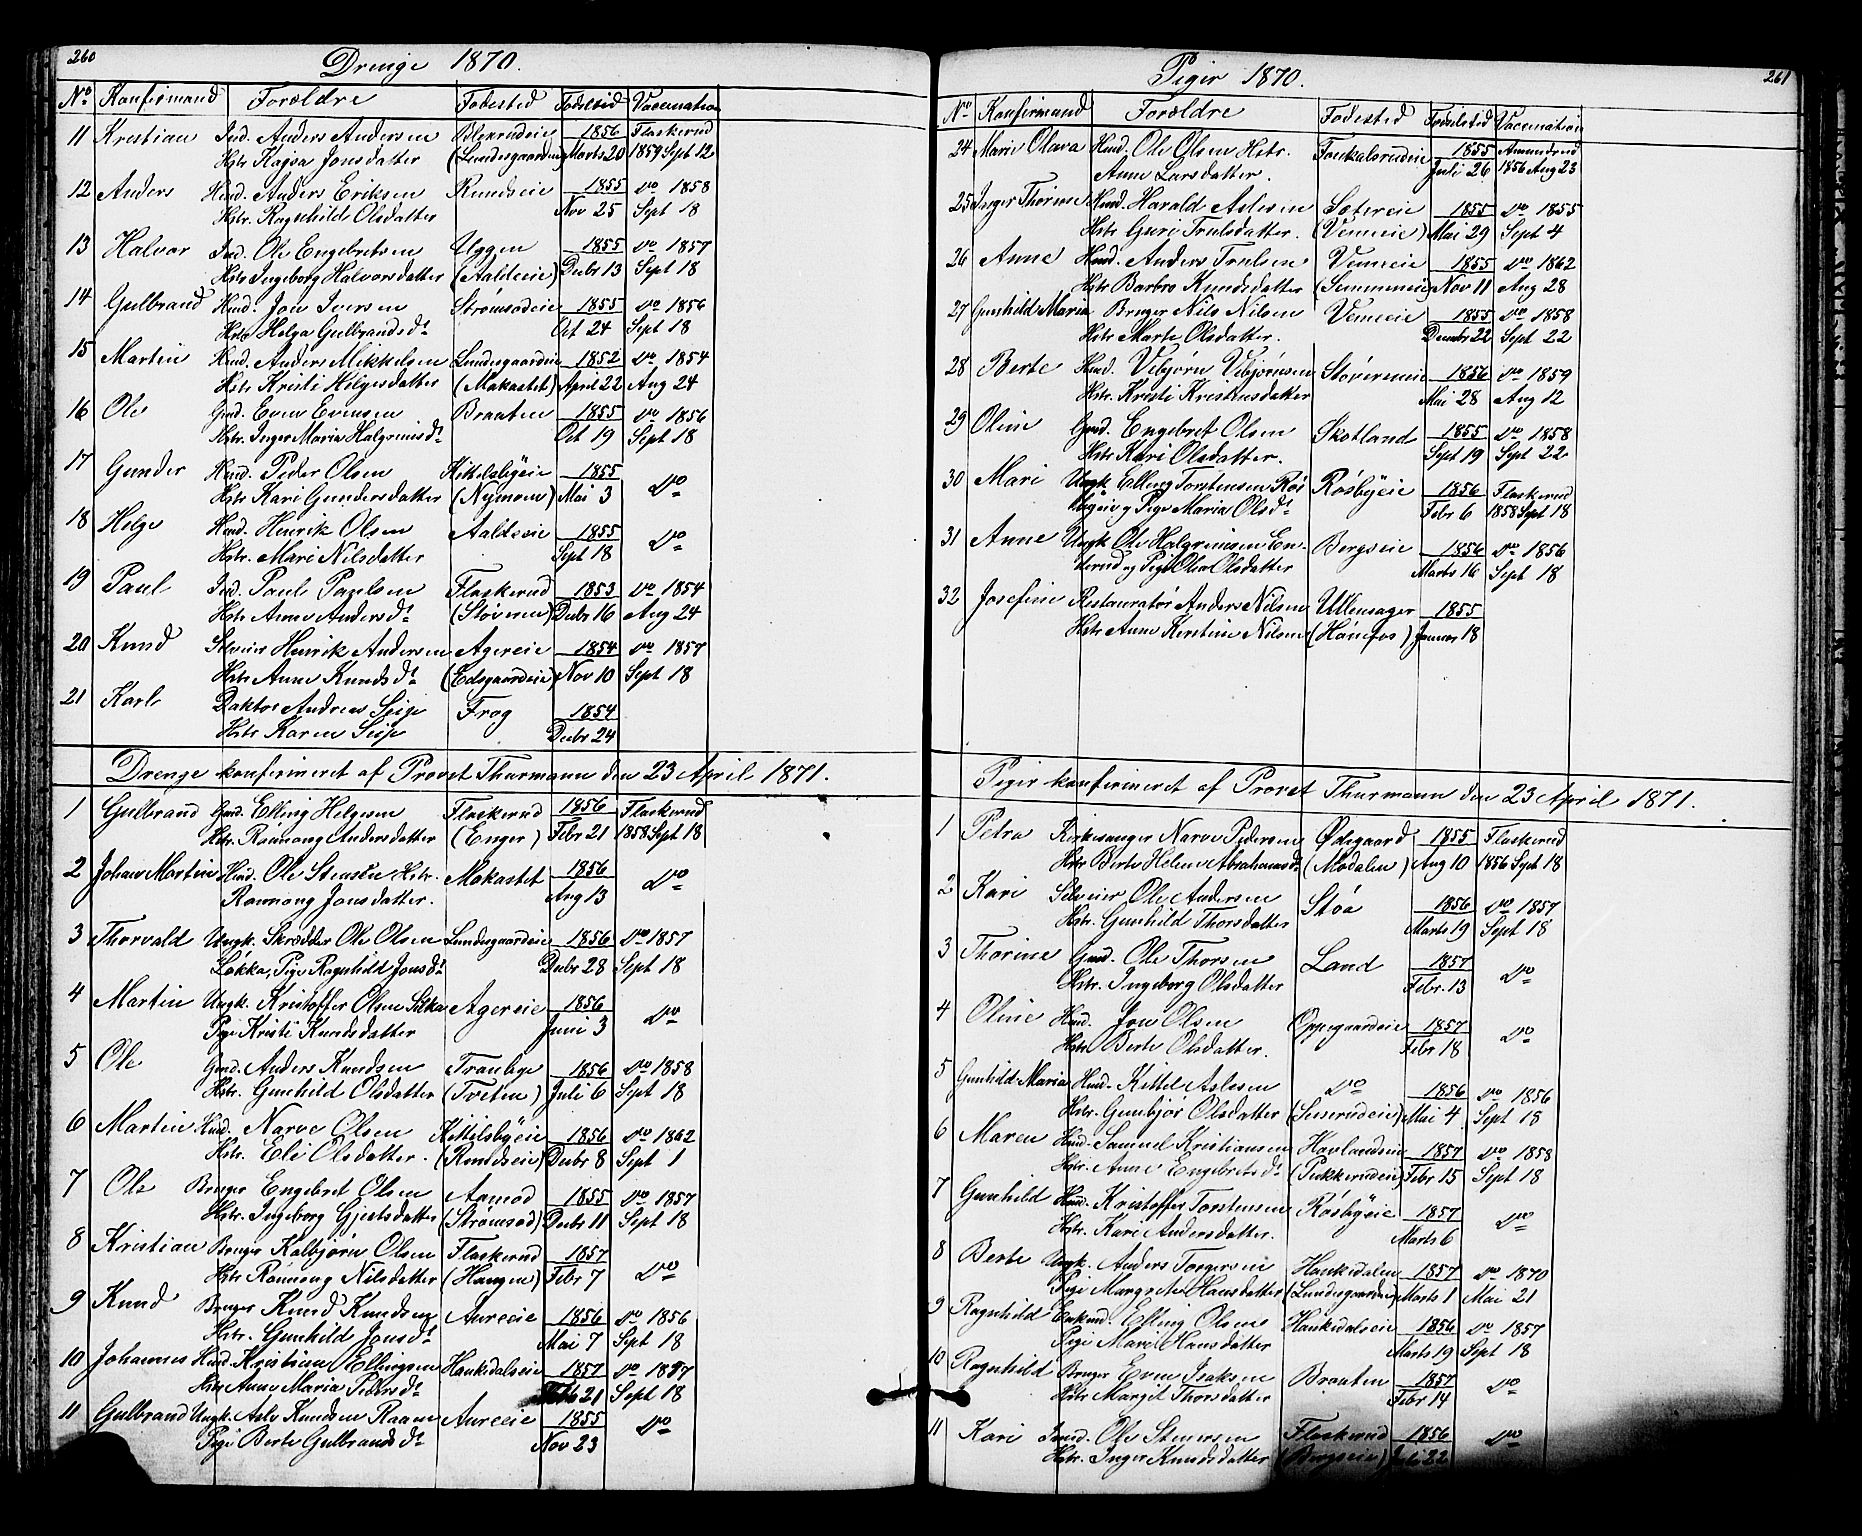 260
Drenge 1870.
No Konfirmand Forældre Fødested Fødselstid Vaccination
11 Kristian Ind. Anders Andersen 1856 Flaskerud
Hstr. Kajsa Jonsdatter (Lundesgaarden) Marts 20 1859 Sept 12
12 Anders Huusd. Anders Eriksen Rundseie 1855 do 1858
Hstr. Ragnhild Olsdatter Nov 25 Sept 18
13 Halvor Ind. Ole Engebretsen Uggen 1855 do 1857
Hstr. Ingeborg Halvorsdatter (Aaldeeie) Decbr 13 Sept 18
14 Gulbrand Hund. Jon Iversen Strømsødeie 1855 do 1856
Hstr. Helga Gulbrandsdr Oct 24 Sept 18
15 Martin Hund. Anders Mikkelsen Lundesgaardeie 1852 do 1854
Hstr. Kristi Helgesdatter (Makastet) April 22 Aug 24
16 Ole Gmd. Even Evensen Braaten 1855 do 1856
Hstr. Inger Maria Halgrimsdr Oct 19 Sept 18
17 Gunder Hund. Peder Olsen Kittelsbyeie 1855 do
Hstr. Kari Gundersdatter (Nymoen) Mai 3
18 Helge Hund. Henrik Olsen Aaldeeie 1855 do
Hstr. Mari Nilsdatter Sept 18
19 Paul Ind. Paul Paulsen Flaskerud 1853 do 1854
Hstr. Anne Andersdr (Støveren) Decbr 16 Aug 24
20 Knud Selveier Henrik Andersen Agereie 1854 do 1857
Hstr. Anne Knudsdr (Edsgaardeie) Nov 10 Sept 18
21 Karl Doktor Andreas Seip Frog 1854
Hstr. Karen Seip Decbr 24
Drenge konfirmeret af Provst Thurmann den 23 April 1871.
1 Gulbrand Gmd. Elling Helgesen Flaskerud 1856 Flaskerud
Hstr. Rønnong Andersdatter (Enger) Febr 21 1858 Sept 18
2 Johan Martin Hund. Ole Stensen Hstr. Makastet 1856 do
Rønnong Jonsdatter. Aug 13
3 Thorvald Ungk. Skrædder Ole Olsen Lundesgaardeie 1856 do 1857
Løkka, Pige Ragnhild Jonsdr Decbr 28 Sept 18
4 Martin Ungk. Kristoffer Olsen Silka Agereie 1856 do
Pige Kristi Knudsdatter Juni 3
5 Ole Gmd. Anders Knudsen Tranbye 1856 do 1858
Hstr. Gunhild Olsdatter (Tveten) Juli 6 Sept 18
6 Martin Hund. Narve Olsen Kittilsbyeie 1856 do 1862
Hstr. Eli Olsdatter. (Rundseie) Decbr 8 Sept 1
7 Ole Bruger Engebret Olsen Aamod 1855 do 1857
Hstr. Ingeborg Gjertsdatter (Strømsød) Decbr 11 Sept 18
8 Kristian Bruger Kolbjørn Olsen Flaskerud 1857 do
Hstr Rønnong Nilsdatter (Haugen) Febr 7
9 Knud Bruger Knud Knudsen Aureeie 1856 do 1856
Hstr. Gunhild Jonsdr Mai 7 Sept 18
10 Johannes Hund. Kristian Ellingsen Hankedalseie 1857 do 1857
Hstr Anne Maria Pedersdr 21 Sept 18
11 Gulbrand Ungk. Asle Knudsen Raaen Aureeie 1855 do
Pige Berte Gulbrandsdr Nov 23
261
Piger 1870.
No Konfirmand Forældre Fødested Fødselstid Vaccination
24 Marie Olava Hund. Ole Olsen Hstr. 1855 Aamundrud
Anne Larsdatter. Juli 26 1856 Aug 23
25 Inger Thorine Hund. Harald Aslesen Sætereie 1855 do 1855
Hstr. Guri Trulsdatter. (Vemeeie) Mai 29 Sept 4
26 Anne Hund. Anders Trulsen Vemeeie 1855 do 1862
Hstr Barbro Knudsdatter (Semmeneie) Nov 11 Aug 28
27 Gunhild Maria Bruger Nils Nilsen Vemeeie 1855 do 1858
Hstr. Marte Olsdatter. Decmbr 22 Sept 22
28 Berte Hund. Vebjørn Vebjørnsen Støverneie 1856 do 1859
Hstr. Kristi Kristensdatter Mai 28 Aug 12
29 Oline Gmd. Engebret Olsen Skotland 1855 do 1858
Hstr Kari Olsdatter. Sept 19 Sept 22
30 Mari Ungk. Elling Torstensen Røs Røsbyeie 1856 Flaskerud
byeie og Pige Maria Olsdr Febr 6 1858 Sept 18
31 Anne Ungk Ole Halgrimsen En- Bergseie 1856 do 1856
derud og Pige Olea Olsdatter Marts 16 Sept 18
32 Josefine Restauratør Anders Nilsen Ullensager 1855
Hstr Anne Kerstine Nilsen (Hønefos) Januar 18
Piger konfirmeret af Provst Thurmann den 23 April 1871.
1 Petra Kirkesanger Narve Pedersen Ødegaard 1855 Flaskerud
Hstr Berte Helene Abrahamsdr (Modalen) Aug 10 1856 Sept 18
2 Kari Selveier Ole Andersen Støa 1856 do 1857
Hstr. Gunhild Thorsdatter Marts 19 Sept 18
3 Thorine Gmd. Ole Thorsen Land 1857 do
Hstr. Ingeborg Olsdatter Febr. 13
4 Oline Hund. Jon Olsen Oppegaardeie 1857 do
Hstr Berte Olsdatter. Febr 18
5 Gunhild Maria Hund. Kittel Aslesen do 1856 do 1856
Hstr. Gunbjør Olsdatter (Sesserudeie) Mai 4 Sept 18
6 Maren Hund. Samuel Kristiansen Havlandseie 1857 do 1858
Hstr. Anne Engebretsdr (Pukkerudeie) Febr 15 Sept 18
7 Gunhild Hund. Kristoffer Torstensen Røsbyeie 1857 do
Hstr. Kari Andersdatter. Marts 6
8 Berte Ungk. Anders Torgersen Hankedalen 1857 do 1870
Pige Margrete Hansdatter (Lundesgaardeie) Marts 1 Mai 21
9 Ragnhild Enkmd. Elling Olsens Hankedalseie 1856 do 1857
Pige Mari Hansdatter Marts 19 Sept 18
10 Ragnhild Bruger Even Isaksen Braaten 1857 do
Hstr. Margit Thorsdatter Febr 14
11 Kari Ind. Ole Steversen Flaskerud 1856 do
Hstr. Inger Knudsdatter (Bergseie) Juli 22